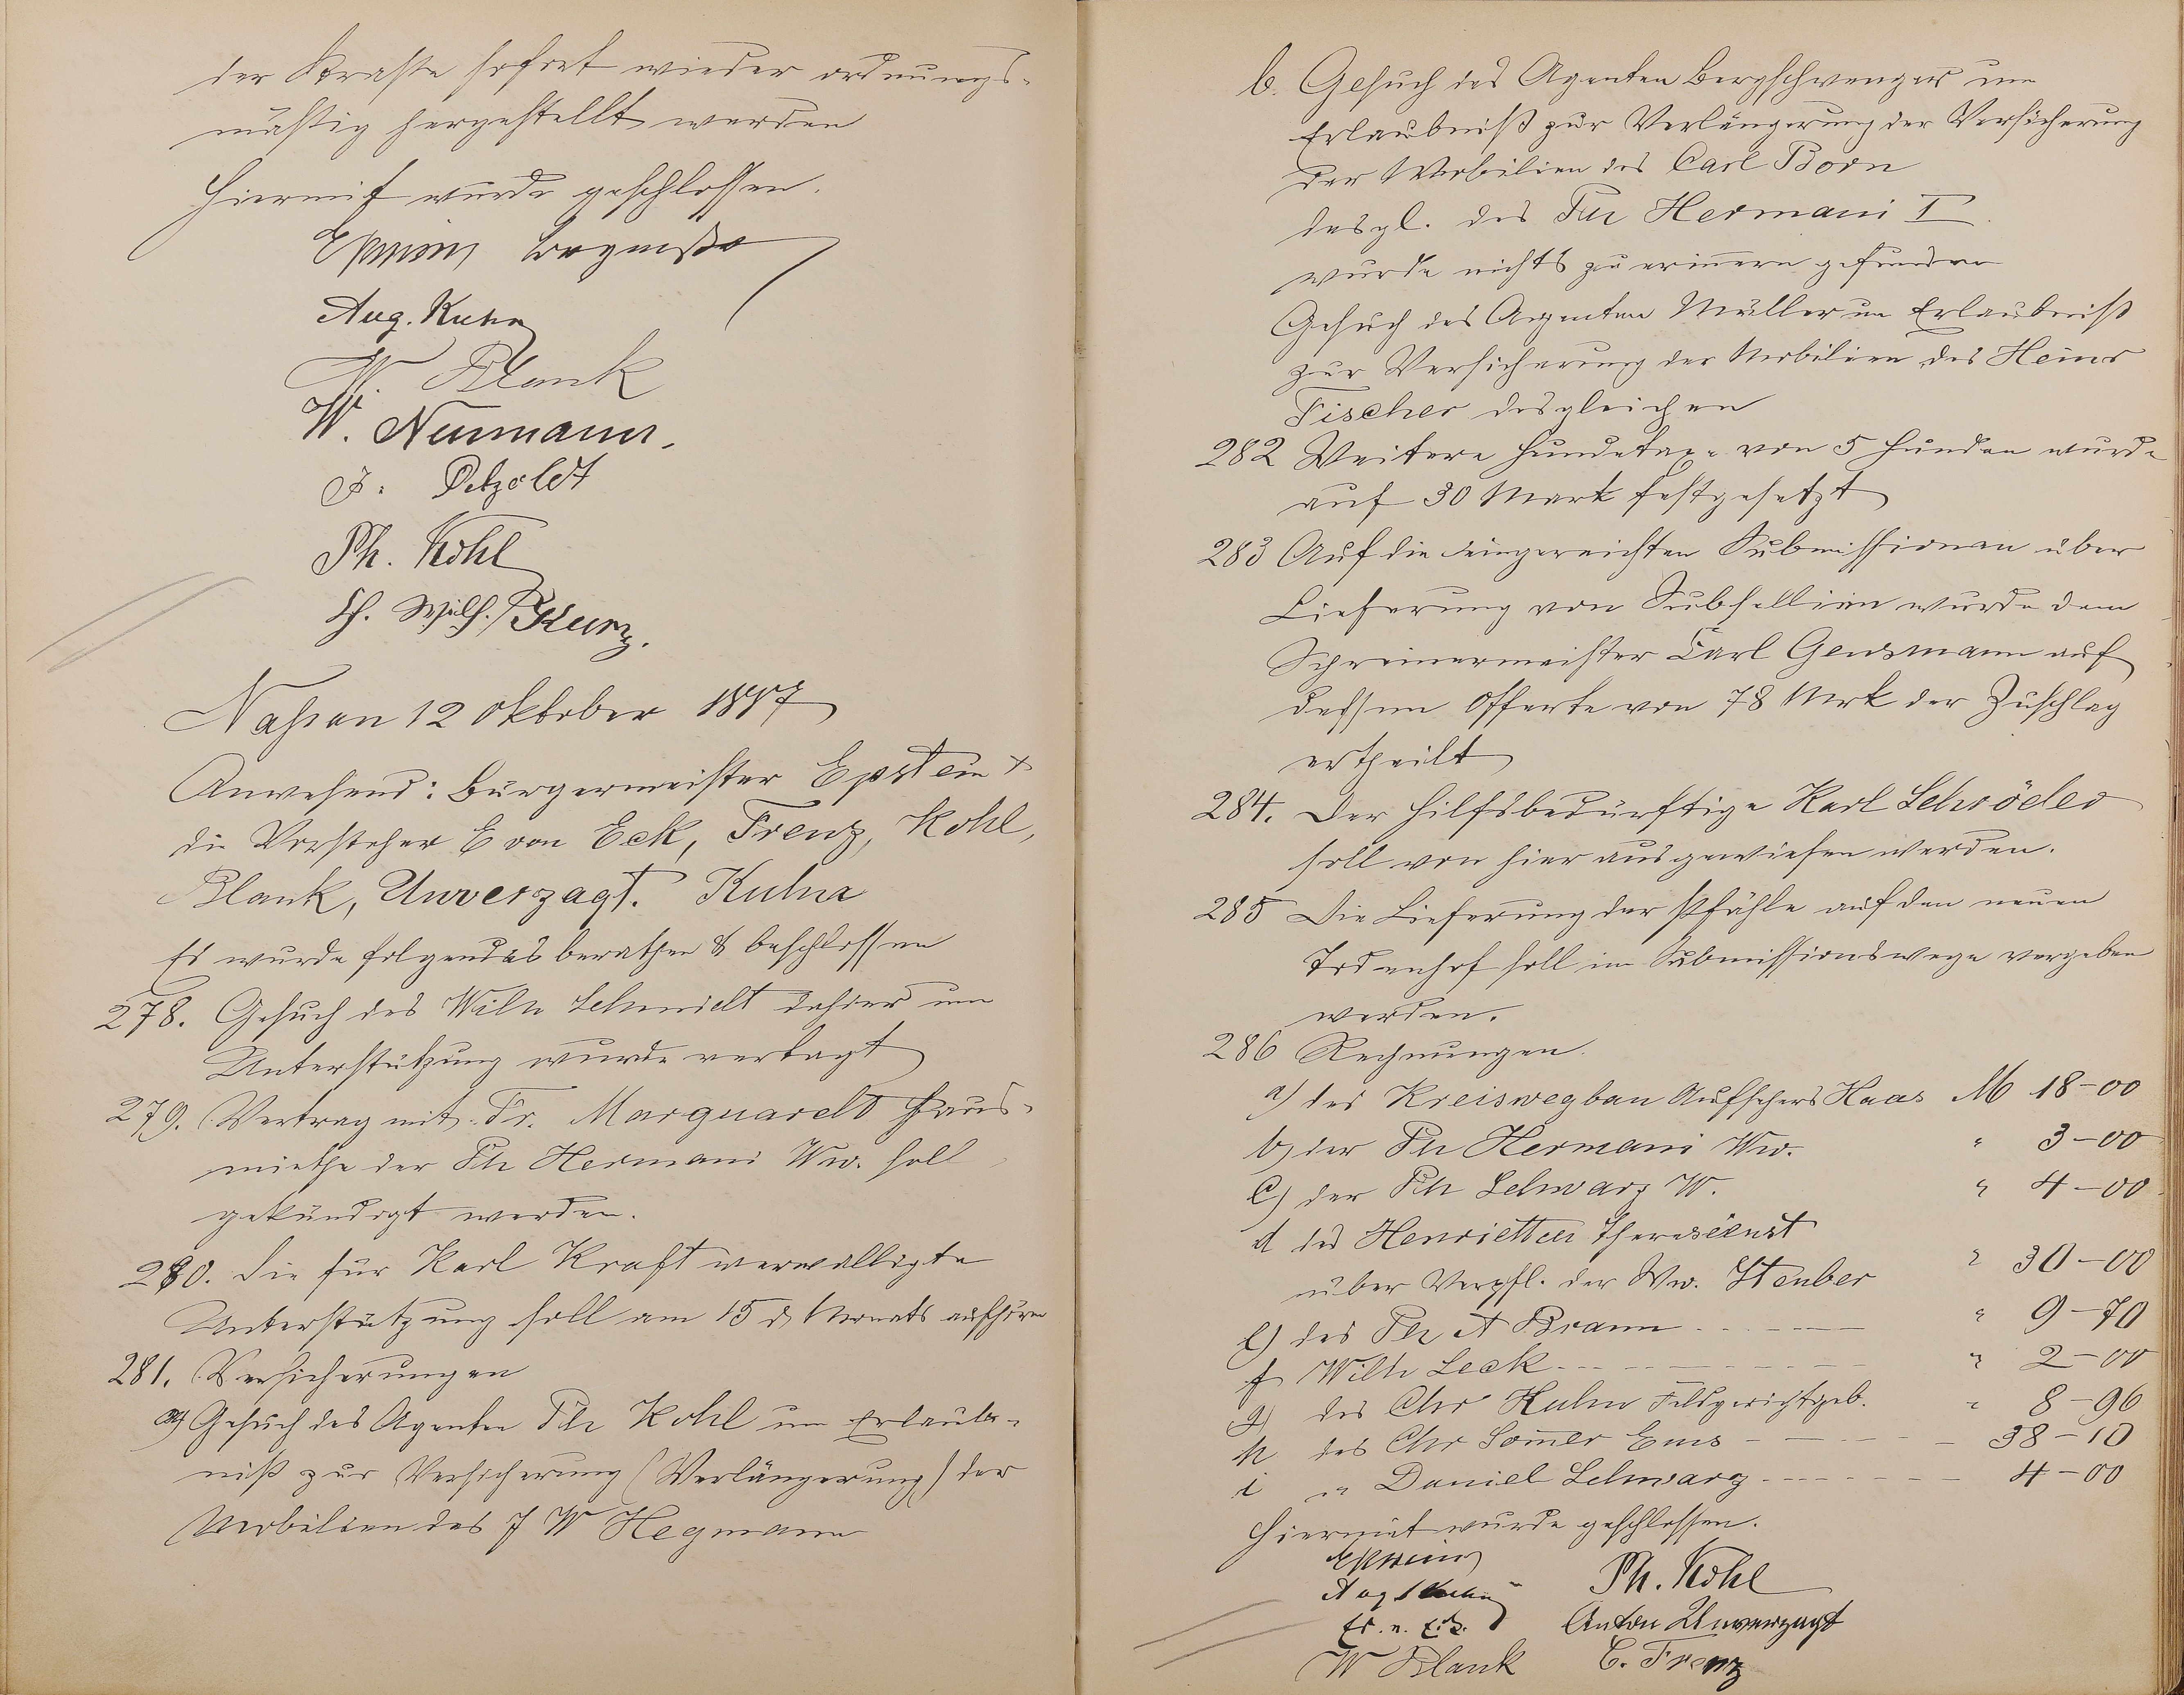 der Straße sofort wieder ordnungs-
mäßig hergestellt werden
Hiermit wurde geschlossen.
Epstein Bürgmstr
Aug. Kuhn
W. Blank
W. Neumann.
Petzoldt
Ph. Kohl
Wilh. Kunz.
Nassau 12 Oktober 1887
Anwesend: Bürgermeister Epstein &
die Vorsteher E von Eck, Frenz, Kohl,
Blank, Unverzagt. Kuhn
Es wurde folgendes berathen & beschlossen
278. Gesuch des Wilh Schmidt dahier um
Unterstützung wurde vertagt
279. Vertrag mit Fr. Marquardt Haus-
miethe der Ph Hermani Ww. soll
gekündigt werden.
280. die für Karl Kraft verwilligte
Unterstützung soll am 15 d Monats aufhören
281. Versicherungen
a) Gesuch des Agenten Ph Kohl um Erlaub-
niß zur Versicherung (Verlängerung) der
Mobilien des J W Hegmann
b. Gesuch des Agenten Bergschwenger um
Erlaubniß zur Verlängerung der Versicherung
der Mobilien des Carl Born
desgl. des Ph Hermani I.
wurde nichts zu erinnern gefunden
Gesuch des Agenten Müller um Erlaubniß
zur Versicherung der Mobilien des Heinr
Fischer desgleichen
282 Weitere Hundetaxe von 5 Hunden wurde
auf 30 Mark festgesetzt
283 Auf die eingereichten Submissionen über
Lieferung von Subsellien wurde dem
Schreinermeister Carl Gensmann auf
dessen Offerte von 78 Mrk der Zuschlag
ertheilt
284. Der hilfsbedürftige Karl Schröder
soll von hier ausgewiesen werden.
285 Die Lieferung der Pfähle auf den neuen
Todenhof soll im Submissionswege vergeben
werden.
286 Rechnungen.
a) des Kreiswegbau Aufsehers Haas M 18-00
b) der Ph Hermani Ww. " 3-00
c) der Ph Schwarz W. " 4-00
d des Henrietten Theresienst
über Verpfl. der Ww. Steuber " 30-00
e) des Ph A Braun " 9-70
f Wilh Leck " 2-00
g) des Chr Kuhn Feldgerichtgeb. " 8-96
h des Chr Sommer Ems 38-10
i " Daniel Schwarz 4-00
Hiermit wurde geschlossen.
Epstein Ph. Kohl
Aug Kuhn
E. v. Eck. Anton Unverzagt
W Blank C. Frenz